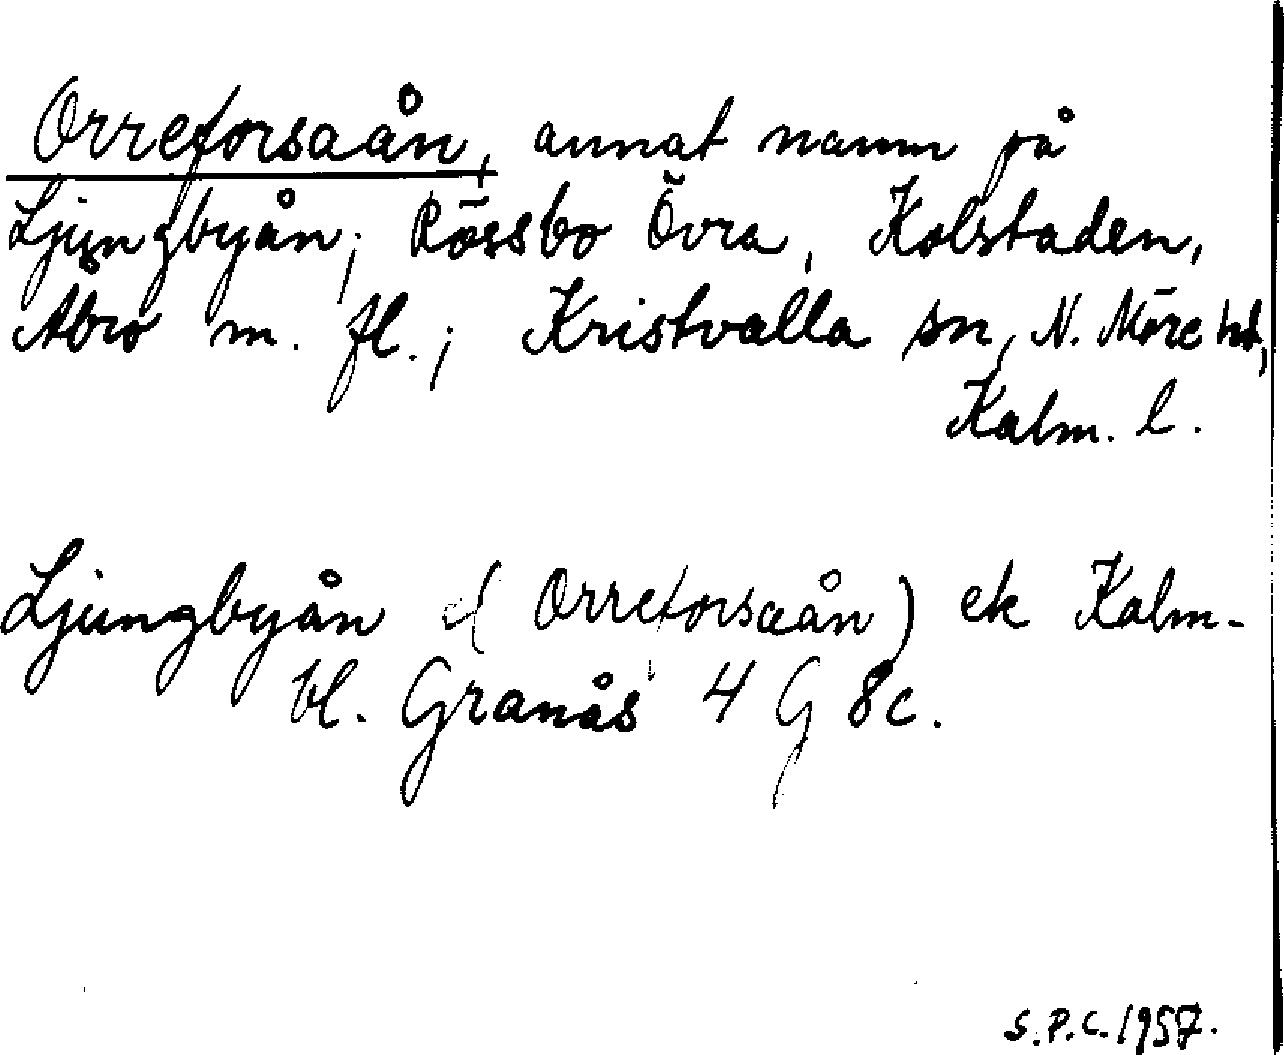 Orreforsaån, annat namn på
Ljungbyån; Rössbo Övra, Kolstaden,
Åbro m. fl.; Kristvalla sn, N. Möre hd,
Kalm. l.
Ljungbyån (Orreforsaån) ek Kalm.
bl. Granås 4 G 8c.
S.P.C. 1957.